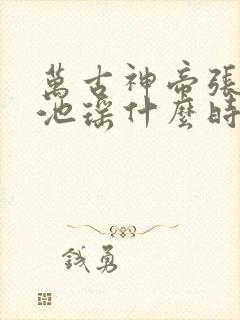 萬古神帝張
池瑤什麼時
錢勇